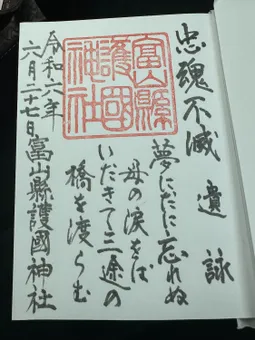 忠魂不滅
遺詠
夢にだに忘れぬ
母の涙をば
いだきて三途の
橋を渡らむ
富山縣
護國
神社
令和六年
六月二十七日
富山縣護國神社